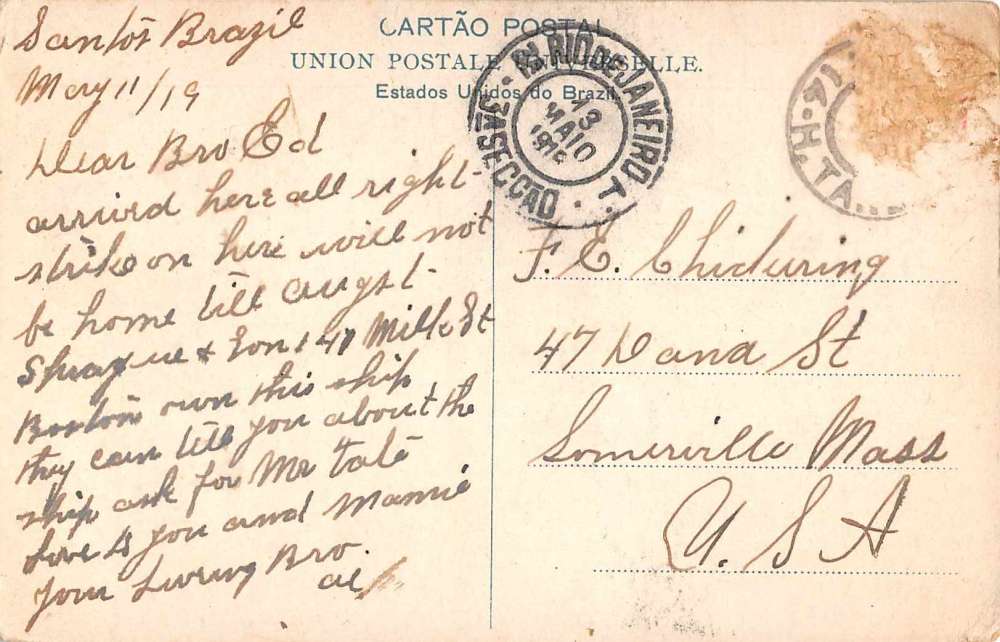 CARTÃO POSTAL
UNION POSTALE UNIVERSELLE.
Estados Unidos do Brazil
RIO DE JANEIRO
13
MAIO
3A SECÇÃO
Santos Brazil
May 11/19
Dear Bro Ed
arrived here all right
strike on here will not
be home till Augst
Sprague & Son 141 Milk St
Boston own this ship
they can tell you about the
ship ask for Mr Tate
Love to you and Mamie
Your Loving Bro
al
F. E. Chickering
47 Dana St
Somerville Mass
U. S A